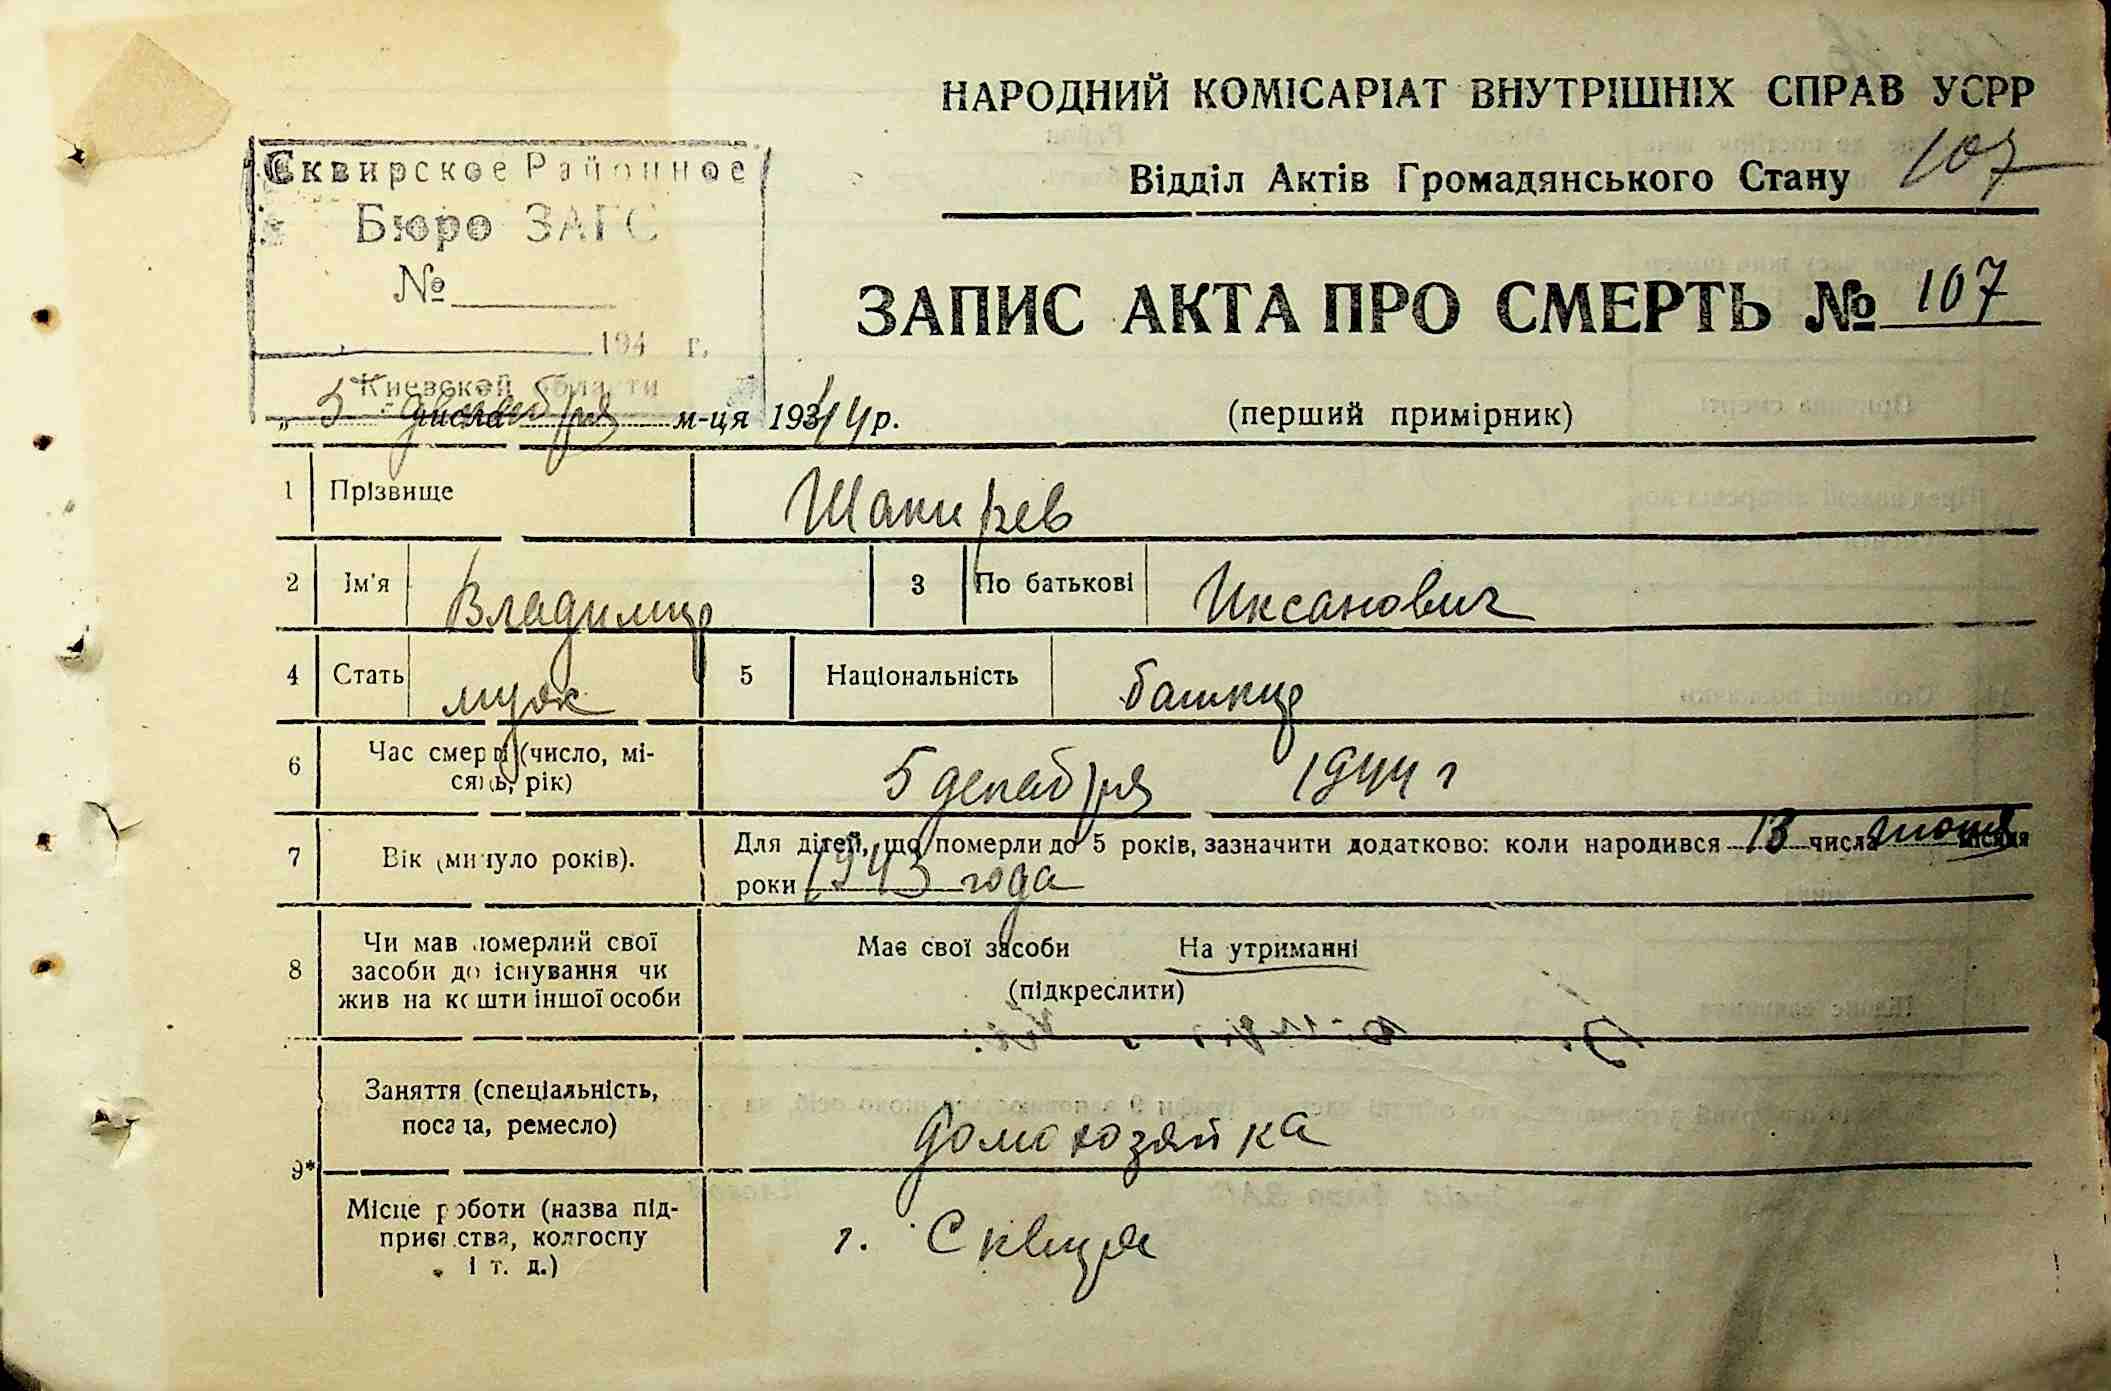 НАРОДНИЙ КОМІСАРІАТ ВНУТРІШНІХ СПРАВ УСРР
Відділ Актів Громадянського Стану 107
Сквирское Районное
Бюро ЗАГС
№
194 г.
Киевской области
ЗАПИС АКТА ПРО СМЕРТЬ № 107
„ 5 декабря м-ця 1944 р.
(перший примірник)
1 Прізвище Шакирев
2 Ім'я Владимир 3 По батькові Иксанович
4 Стать муж 5 Національність башкир
6 Час смерти (число, мі-
сяць, рік) 5 декабря 1944 г
7 Вік (минуло років). Для дітей, що померли до 5 років, зазначити додатково: коли народився 13 числа місяця
роки 1943 года
8 Чи мав померлий свої
засоби до існування чи
жив на кошти іншої особи
Має свої засоби На утриманні
(підкреслити)
9* Заняття (спеціальність,
посада, ремесло) домохозяйка
Місце роботи (назва під-
приємства, колгоспу
і т. д.) г. Сквира